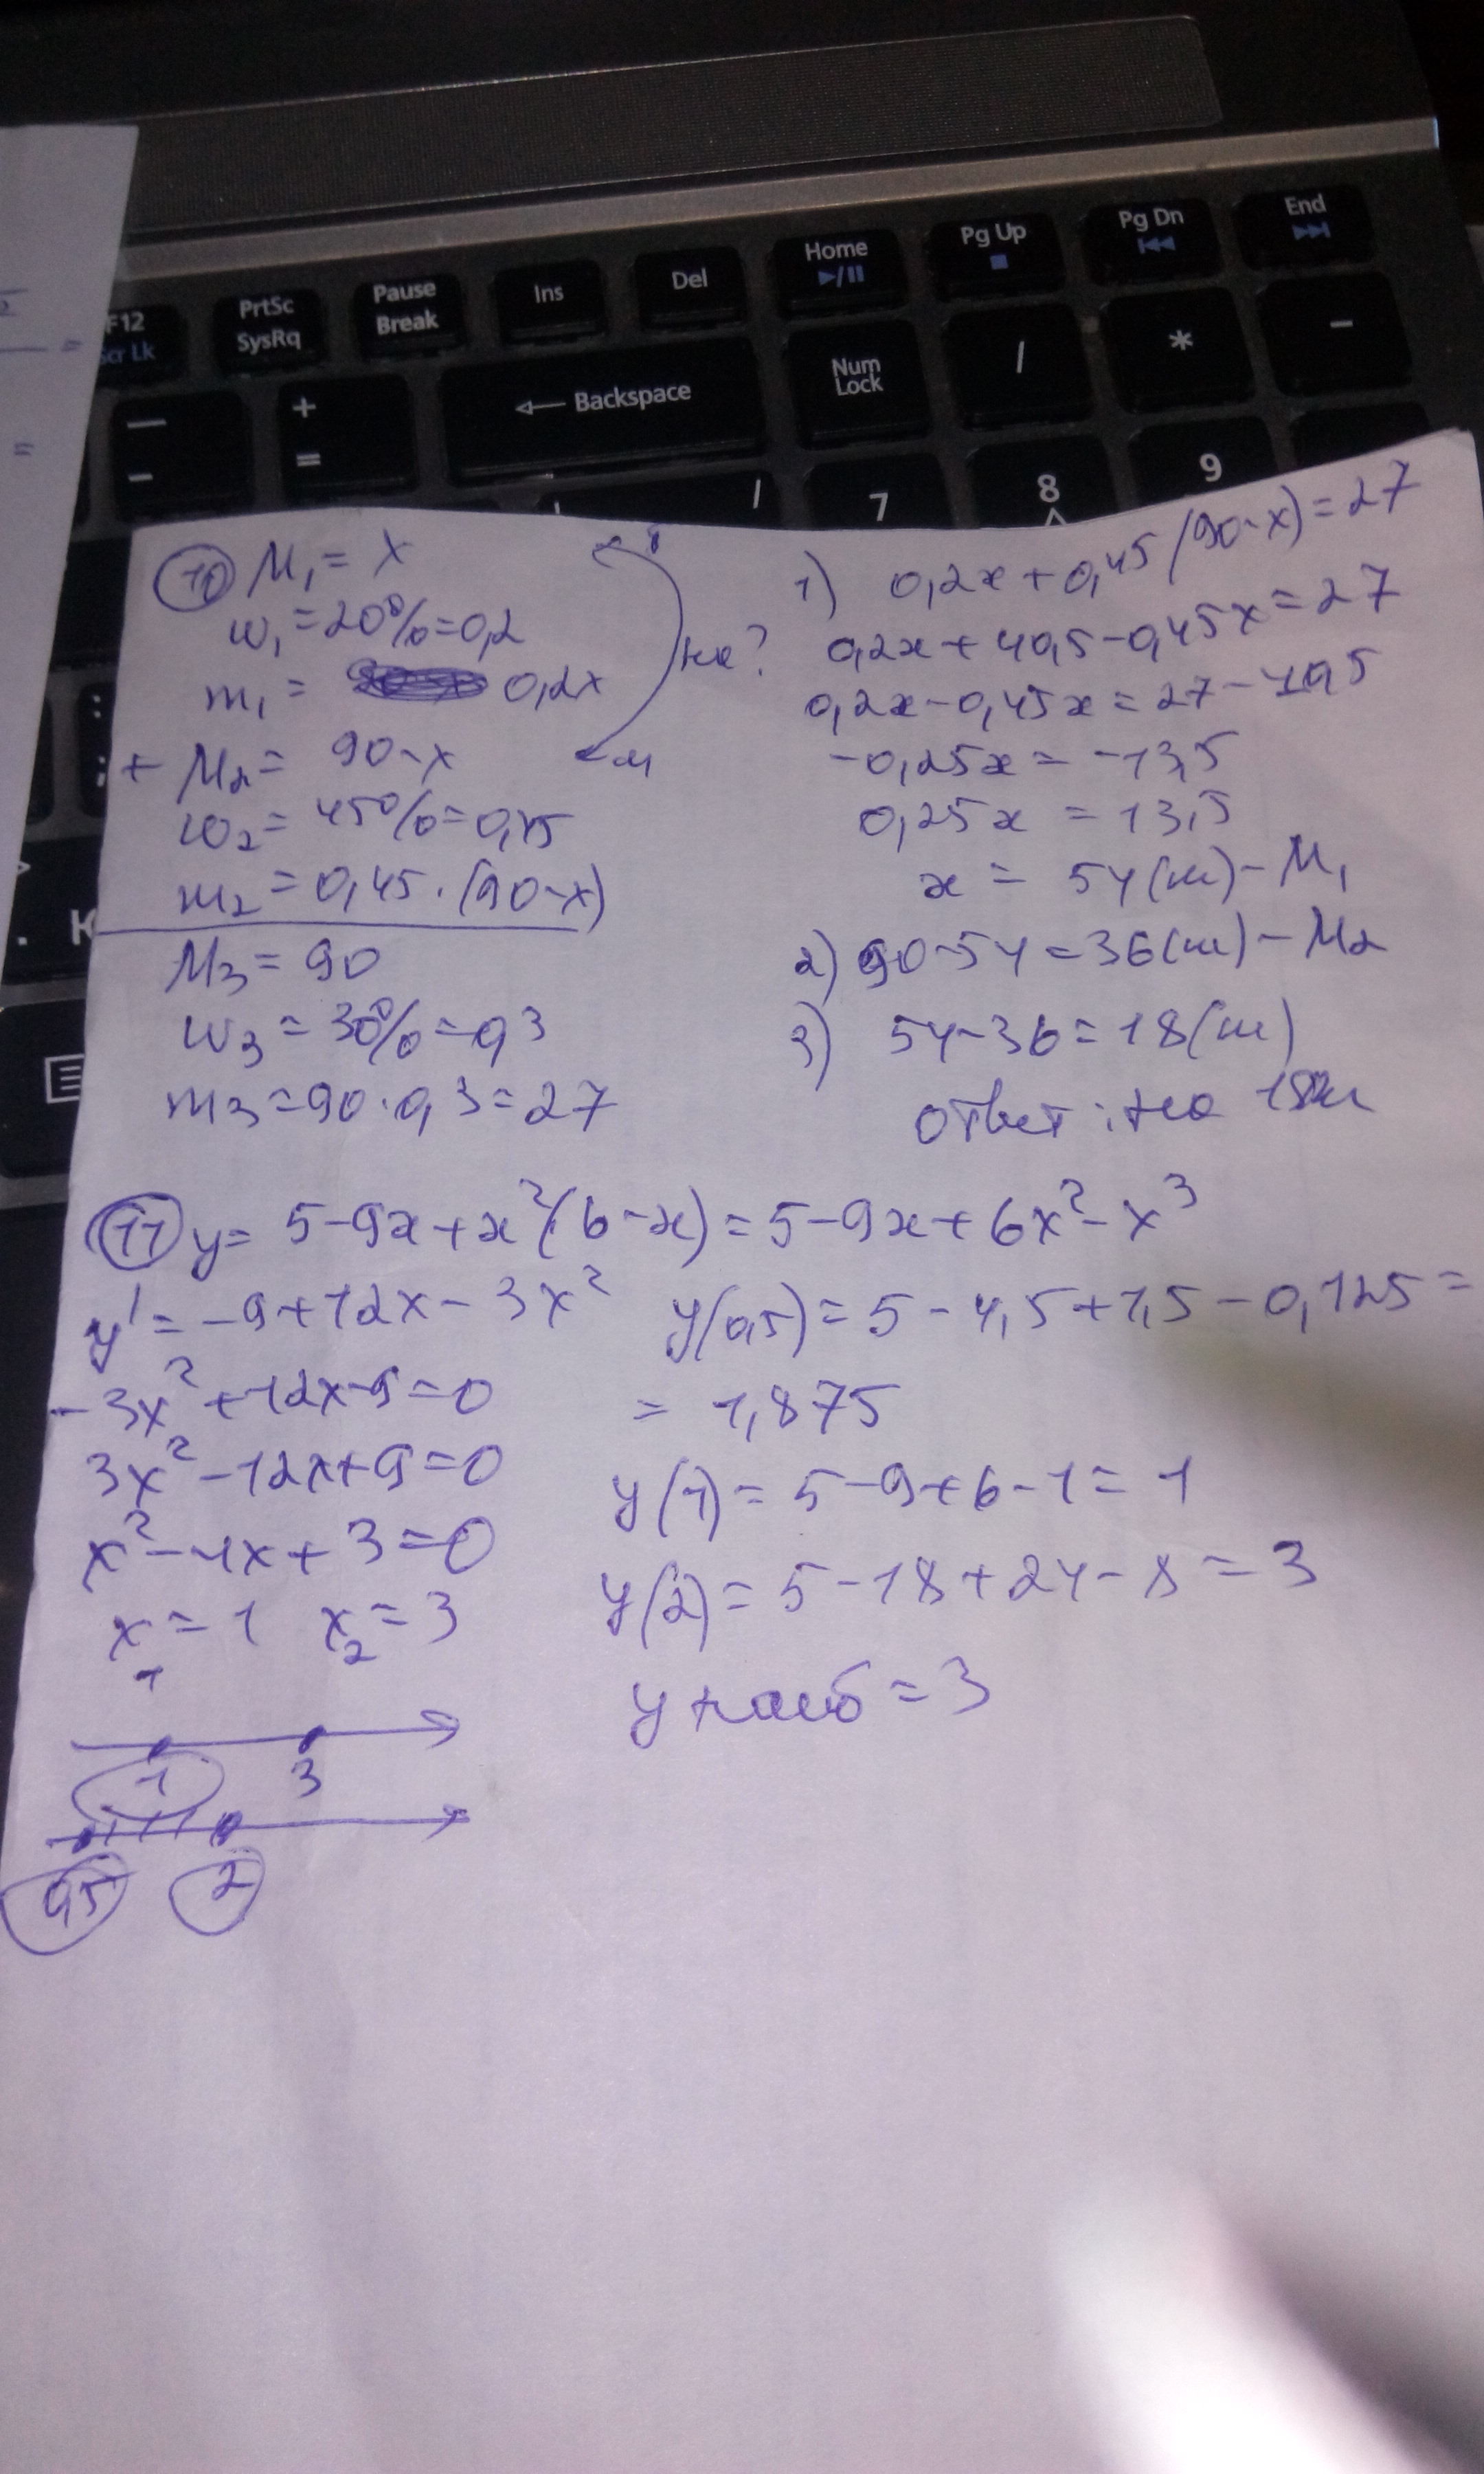 F12
Scr Lk
PrtSc
SysRq
Pause
Break
Ins
Del
Home
Pg Up
Pg Dn
End
+
=
Backspace
Num
Lock
/
*
-
7
8
9
10 M₁ = x
ω₁ = 20% = 0,2
m₁ = 0,2x
+ M₂ = 90-x
ω₂ = 45% = 0,45
m₂ = 0,45·(90-x)
M₃ = 90
ω₃ = 30% = 0,3
m₃ = 90·0,3 = 27
на?
1) 0,2x + 0,45(90-x) = 27
0,2x + 40,5 - 0,45x = 27
0,2x - 0,45x = 27 - 40,5
-0,25x = -13,5
0,25x = 13,5
x = 54(кг) - M₁
2) 90-54 = 36(кг) - M₂
3) 54-36 = 18(кг)
ответ: на 18кг
11 y = 5-9x+x²(6-x) = 5-9x+6x²-x³
y' = -9+12x-3x²
-3x²+12x-9=0
3x²-12x+9=0
x²-4x+3=0
x₁ = 1 x₂ = 3
1 3
0,5 2
y(0,5) = 5-4,5+1,5-0,125 =
= 1,875
y(1) = 5-9+6-1 = 1
y(2) = 5-18+24-8 = 3
y наиб = 3